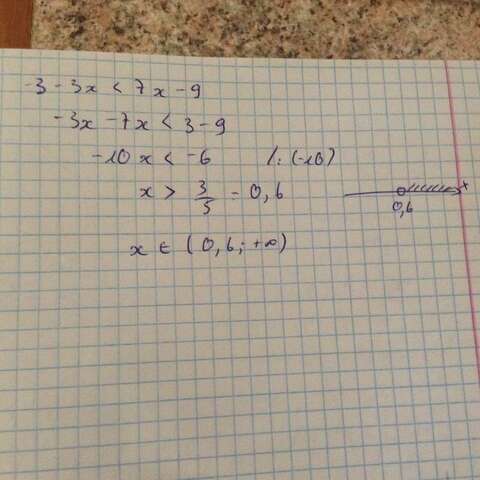 -3 - 3x < 7x - 9
-3x - 7x < 3 - 9
-10x < -6 /: (-10)
x > 3/5 = 0,6
x
0,6
x ∈ (0,6; +∞)